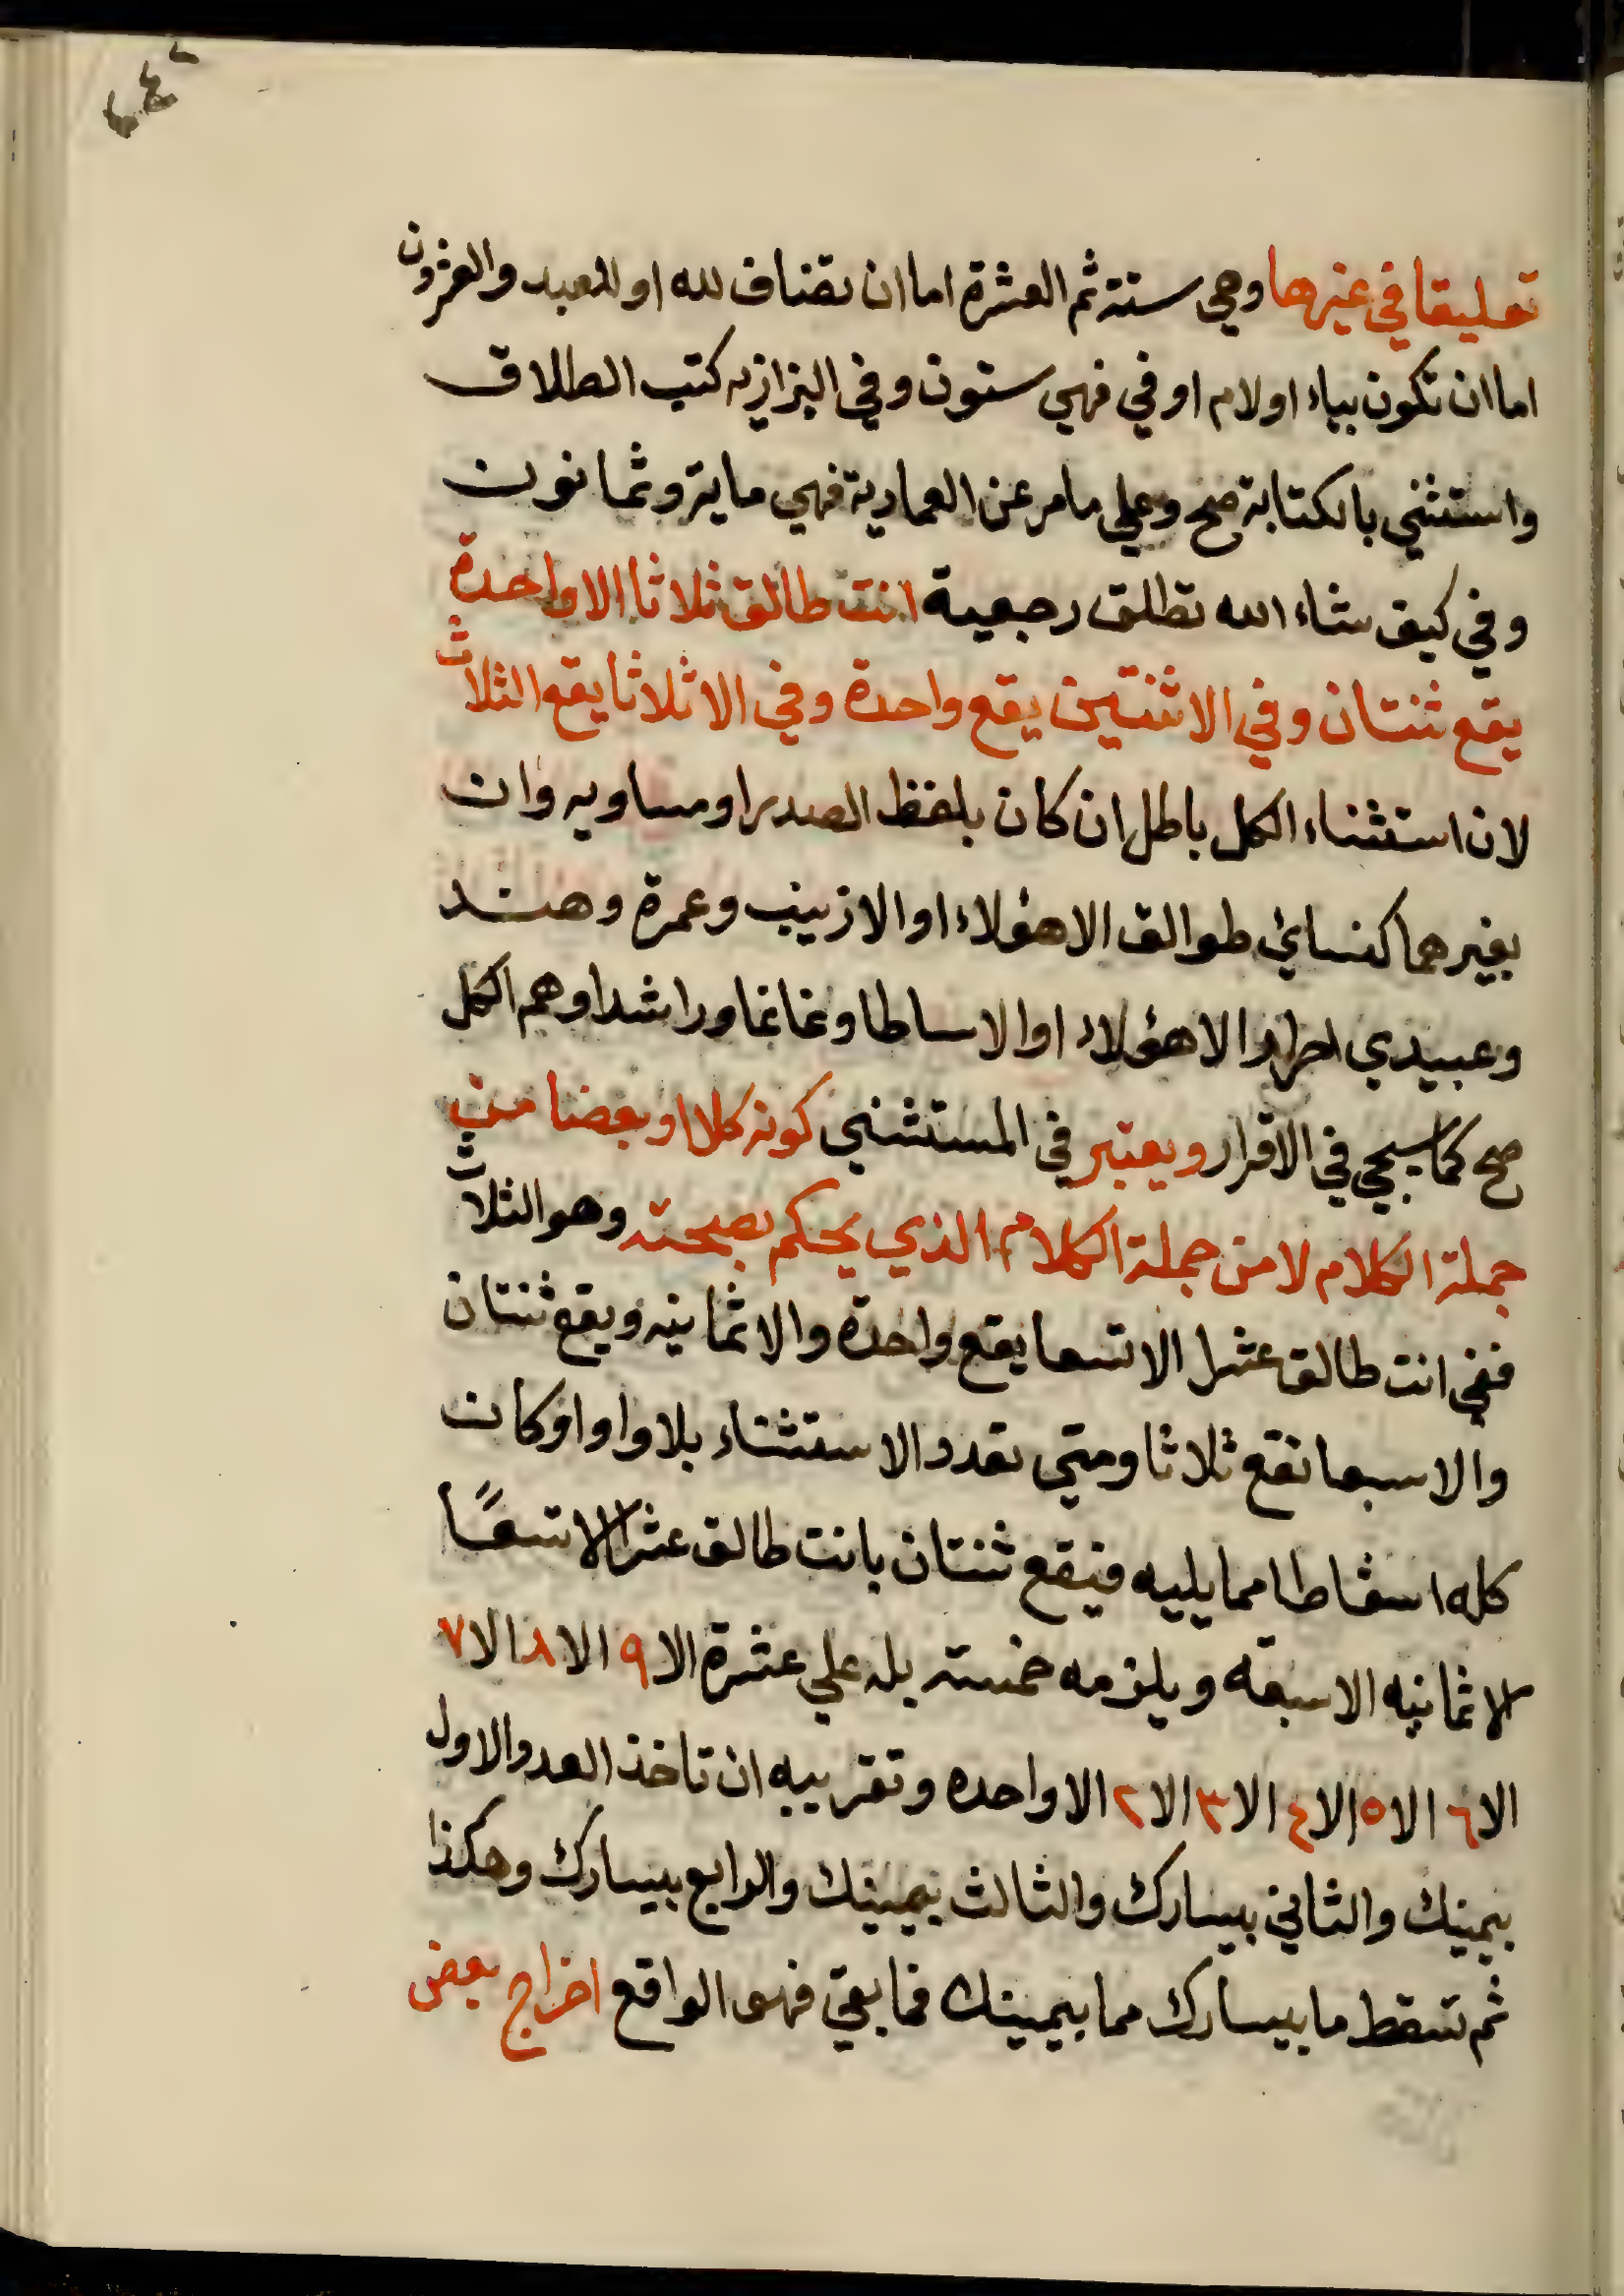 تعليقا في غيرها وهي ستة ثم العشرة اما ان تضاف لله او للعبد والعشرون
اما ان تكون بباء او لام او في فهي ستون وفي البزازيه كتب الطلاق
واستثني بالكتابة صح وعلي مامر عن العمادية فهي ماية وثمانون
وفي كيف شاء الله تطلق رجعية انت طالق ثلاثا الا واحدة
يقع ثنتان وفي الا ثنتين يقع واحدة وفي الا ثلاثا يقع الثلاث
لان استثناء الكل باطل ان كان بلفظ الصدر او مساويه وان
بغيرهما كنسائ طوالق الا هؤلاء او الا زينب وعمرة وهند
وعبيدي احرار الا هؤلاء او الا ساطا وغانما وراشدا وهم الكل
صح كما سيجي في الاقرار ويعتبر في المستثني كونه كلا او بعضا من
جملة الكلام لا من جملة الكلام الذي يحكم بصحته وهو الثلاث
ففي انت طالق عشرا الا تسعا يقع واحدة والا ثمانيه ويقع ثنتان
والا سبعا نقع ثلاثا ومتي تعدد الاستثناء بلا واو اوكان
كله اسقاطا مما يليه فيقع ثنتان بانت طالق عشرا الا تسعًا
الا ثمانيه الا سبعة ويلزمه خمسة بله علي عشرة الا ٩ الا ٨ الا ٧
الا ٦ الا ٥ الا ٤ الا ٣ الا ٢ الا واحده وتقريبه ان تاخذ العدد الاول
بيمينك والثاني بيسارك والثالث بيمينك والرابع بيسارك وهكذا
ثم تسقط ما بيسارك مما بيمينك فما بقي فهو الواقع اخراج بعض